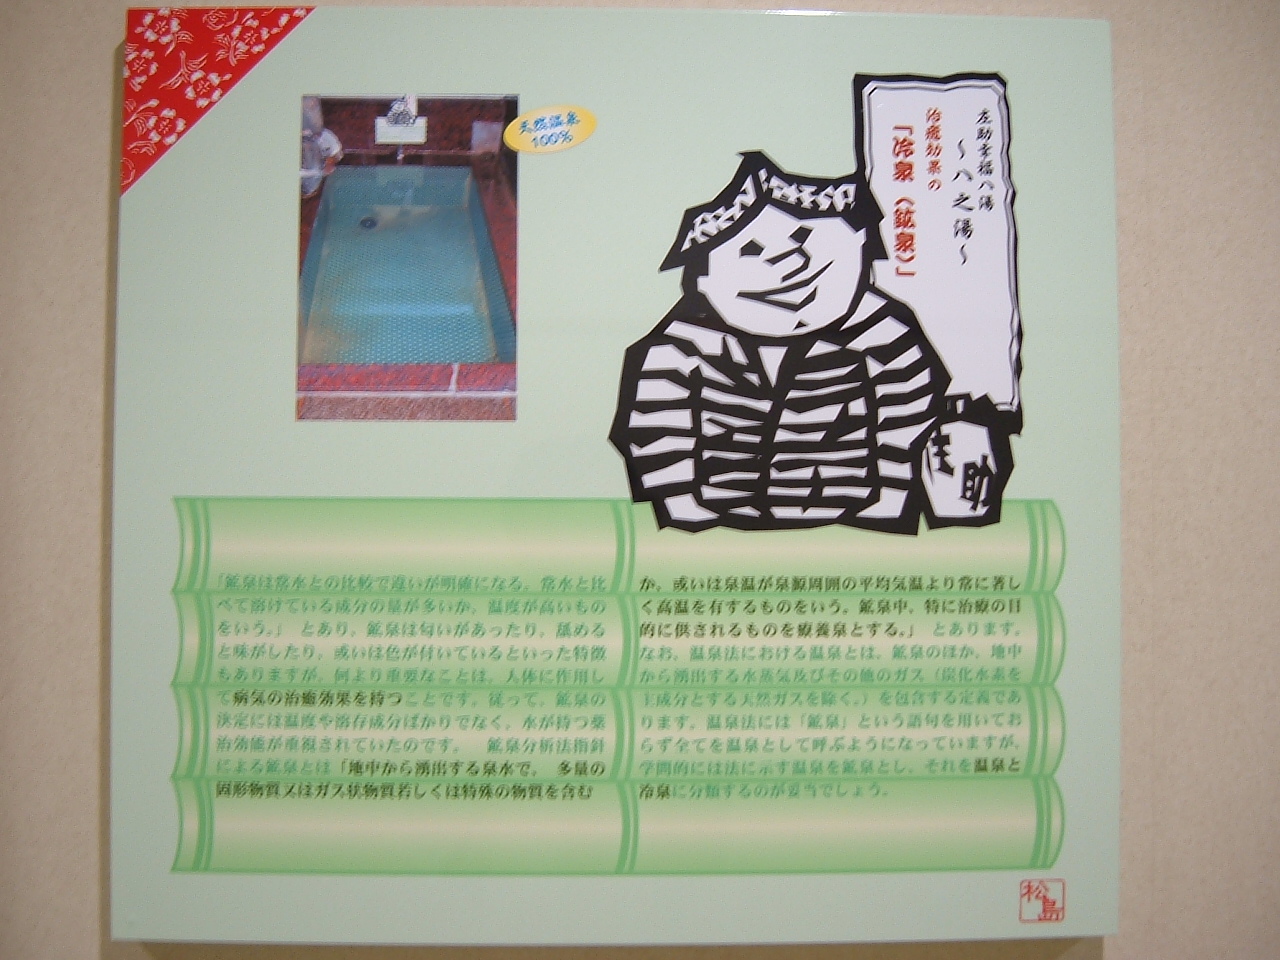 天然温泉
100%
左助幸福八湯
～八之湯～
治癒効果の
「冷泉（鉱泉）」
左助
「鉱泉は常水との比較で違いが明確になる。常水と比
べて溶けている成分の量が多いか、温度が高いもの
をいう。」 とあり、鉱泉は匂いがあったり、舐める
と味がしたり、或いは色が付いているといった特徴
もありますが、何より重要なことは、人体に作用し
て病気の治癒効果を持つことです。従って、鉱泉の
決定には温度や溶存成分ばかりでなく、水が持つ薬
治効能が重視されていたのです。 鉱泉分析法指針
による鉱泉とは「地中から湧出する泉水で、 多量の
固形物質又はガス状物質若しくは特殊の物質を含む
か、或いは泉温が泉源周囲の平均気温より常に著し
く高温を有するものをいう。鉱泉中、特に治療の目
的に供されるものを療養泉とする。」 とあります。
なお、温泉法における温泉とは、鉱泉のほか、地中
から湧出する水蒸気及びその他のガス（炭化水素を
主成分とする天然ガスを除く。）を包含する定義であ
ります。温泉法には「鉱泉」という語句を用いてお
らず全てを温泉として呼ぶようになっていますが、
学問的には法に示す温泉を鉱泉とし、それを温泉と
冷泉に分類するのが妥当でしょう。
松島